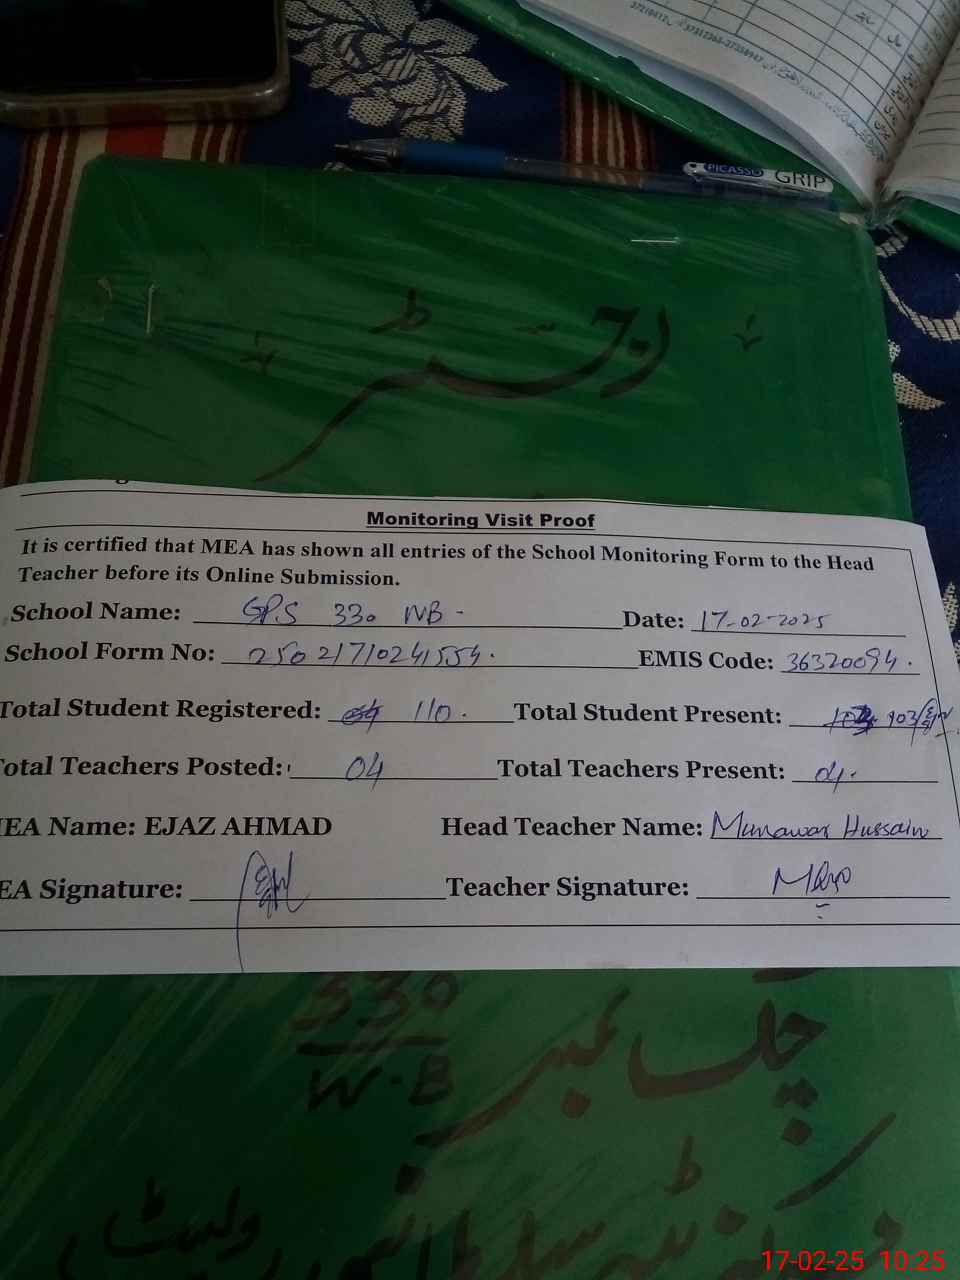 PICASSO GRIP
رجسٹر
Monitoring Visit Proof
It is certified that MEA has shown all entries of the School Monitoring Form to the Head
Teacher before its Online Submission.
School Name: GPS 330 WB - Date: 17-02-2025
School Form No: 25021710241554. EMIS Code: 36320094.
Total Student Registered: 110. Total Student Present: 103
otal Teachers Posted: 04 Total Teachers Present: 04.
EA Name: EJAZ AHMAD Head Teacher Name: Munawar Hussain
EA Signature: Teacher Signature:
چک نمبر 330
W.B
17-02-25 10:25